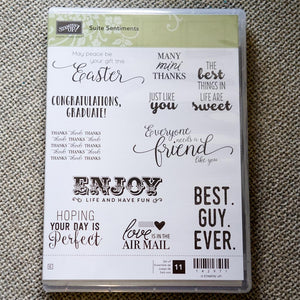 STAMPIN' UP!
Suite Sentiments
May peace be
your gift this
Easter
MANY
mini
THANKS
THE
best
THINGS IN
LIFE ARE
sweet
CONGRATULATIONS,
GRADUATE!
JUST LIKE
you
THANKS thanks THANKS
THANKS thanks THANKS
THANKS thanks THANKS
THANKS thanks THANKS
Everyone
needs a
friend
like you
ENJOY
LIFE AND HAVE FUN
BEST.
GUY.
EVER.
HOPING
YOUR DAY IS
Perfect
love IS IN THE
AIR MAIL
11